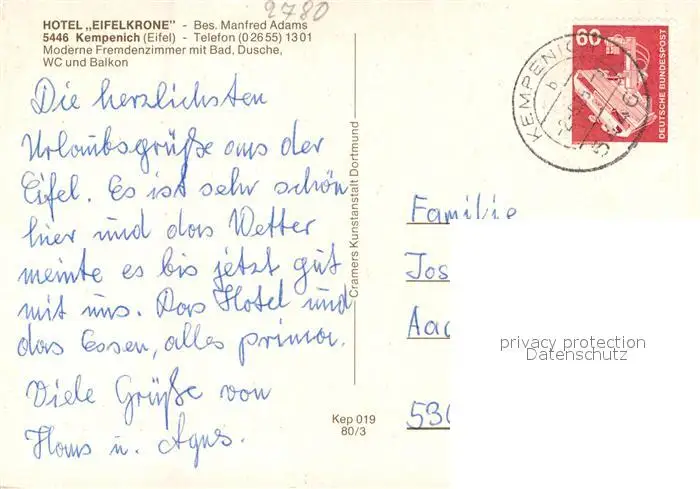 2780
HOTEL „EIFELKRONE" - Bes. Manfred Adams
5446 Kempenich (Eifel) - Telefon (0 26 55) 13 01
Moderne Fremdenzimmer mit Bad, Dusche,
WC und Balkon
Die herzlichsten
Urlaubsgrüße aus der
Eifel. Es ist sehr schön
hier und das Wetter
meinte es bis jetzt gut
mit uns. Das Hotel und
das Essen, alles prima.
Viele Grüße von
Hans u. Agnes.
Cramers Kunstanstalt Dortmund
Kep 019
80/3
60
DEUTSCHE BUNDESPOST
KEMPENICH
b
Familie
Jos
Aac
530
privacy protection
Datenschutz